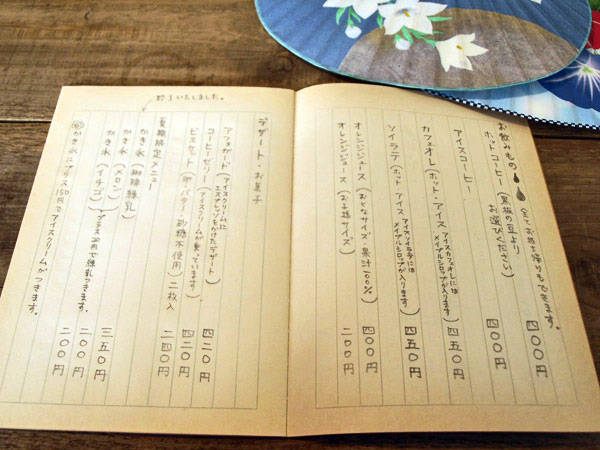 お飲みもの (全てお持ち帰りもできます。
ホットコーヒー (黒板の豆より お選びください) 四〇〇円
アイスコーヒー 四〇〇円
カフェオレ (ホット・アイス アイスカフェオレには メイプルシロップが入ります) 四五〇円
ソイラテ (ホット・アイス アイスソイラテには メイプルシロップが入ります) 四五〇円
オレンジジュース (おとなサイズ・果汁100%) 四〇〇円
オレンジジュース (お子様サイズ) 二〇〇円
デザート・お菓子
アフォガード (アイスクリームに エスプレッソをかけたデザート) 四二〇円
コーヒーゼリー (アイスクリームが乗っています) 四二〇円
ビスケット (卵・バター・砂糖不使用) 二枚入 二四〇円
終了いたしました。
夏期限定メニュー
かき氷 (珈琲練乳) 三五〇円
かき氷 (メロン) 二〇〇円
かき氷 (イチゴ) (プラス30円で練乳つきます。 二〇〇円
かき氷にプラス150円でアイスクリームがつきます。